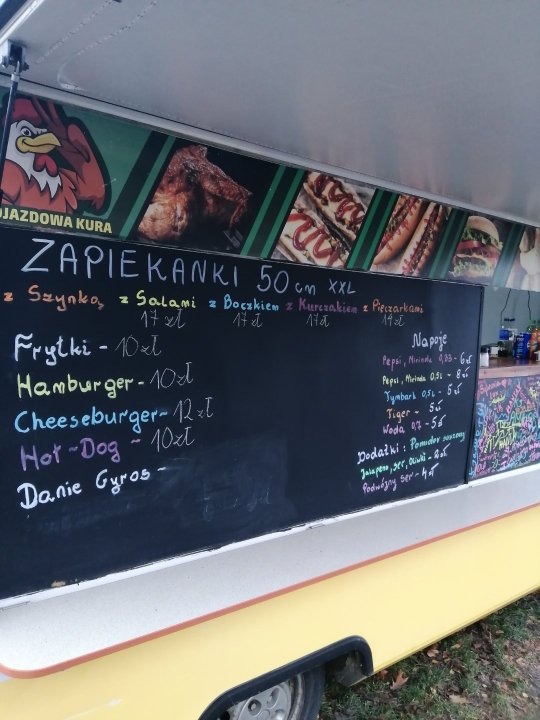 JAZDOWA KURA
ZAPIEKANKI 50 cm XXL
z Szynką z Salami z Boczkiem z Kurczakiem z Pieczarkami
17 zł 17 zł 17 zł 14 zł
Frytki - 10 zł
Hamburger - 10 zł
Cheeseburger - 12 zł
Hot-Dog - 10 zł
Danie Gyros -
Napoje
Pepsi, Mirinda 0,33 - 6 zł
Pepsi, Mirinda 0,5L - 8 zł
Tymbark 0,5L - 5 zł
Tiger - 5 zł
Woda 0,7 - 5 zł
Dodatki: Pomidor suszony
Jalapeno, ser, Oliwki - 2 zł
Podwójny ser - 4 zł